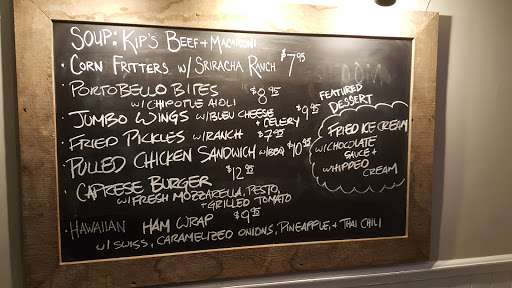 SOUP: KIP'S BEEF + MACARONI
· CORN FRITTERS W/ SRIRACHA RANCH $7.95
· PORTOBELLO BITES $8.95
W/ CHIPOTLE AIOLI
· JUMBO WINGS W/ BLEU CHEESE + CELERY $9.95
· FRIED PICKLES W/ RANCH $7.95
· PULLED CHICKEN SANDWICH W/ BBQ $10.95
· CAPRESE BURGER $12.95
W/ FRESH MOZZARELLA, PESTO,
+ GRILLED TOMATO
· HAWAIIAN HAM WRAP $9.95
W/ SWISS, CARAMELIZED ONIONS, PINEAPPLE, + THAI CHILI
FEATURED
DESSERT
FRIED ICE CREAM
W/ CHOCOLATE
SAUCE +
WHIPPED
CREAM